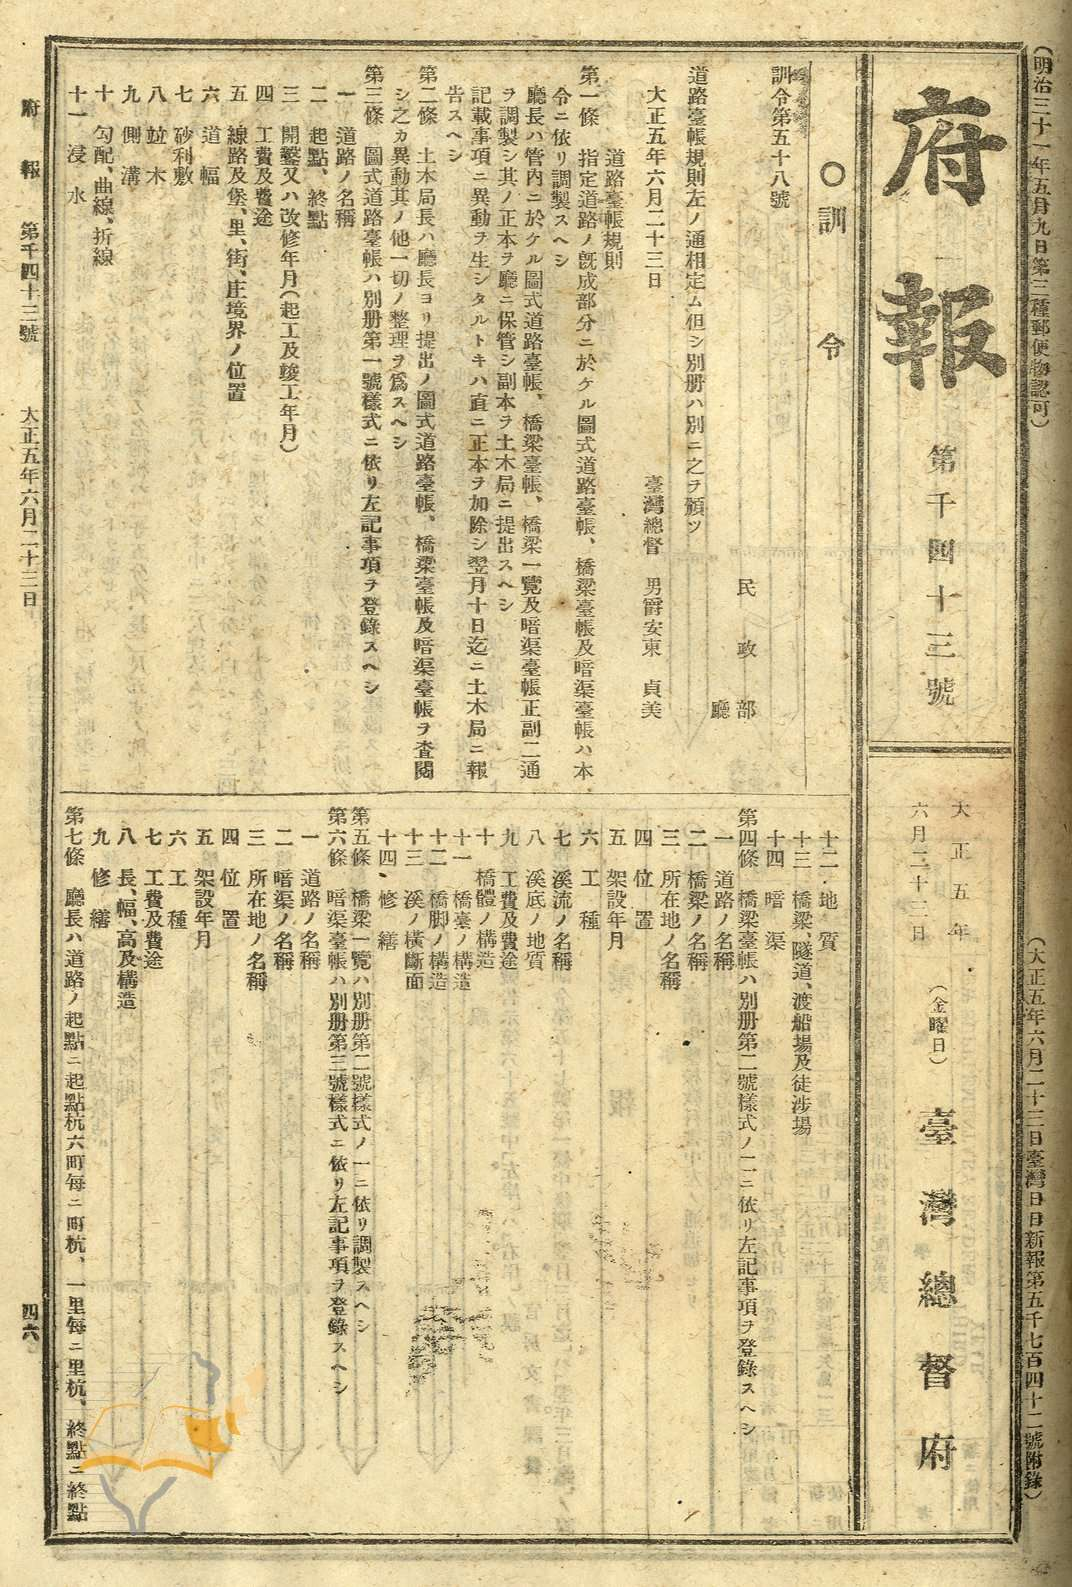 (明治三十一年五月九日第三種郵便物認可)
(大正五年六月二十三日臺灣日日新報第五千七百四十二號附錄)
府報
第千四十三號
大正五年
六月二十三日
(金曜日)
臺灣總督府
○訓令
訓令第五十八號
民政部
廳
道路臺帳規則左ノ通相定ム但シ別册ハ別ニ之ヲ頒ツ
大正五年六月二十三日
臺灣總督 男爵安東 貞美
道路臺帳規則
第一條 指定道路ノ旣成部分ニ於ケル圖式道路臺帳、橋梁臺帳及暗渠臺帳ハ本
令ニ依リ調製スヘシ
廳長ハ管內ニ於ケル圖式道路臺帳、橋梁臺帳、橋梁一覽及暗渠臺帳正副二通
ヲ調製シ其ノ正本ヲ廳ニ保管シ副本ヲ土木局ニ提出スヘシ
記載事項ニ異動ヲ生シタルトキハ直ニ正本ヲ加除シ翌月十日迄ニ土木局ニ報
吿スヘシ
第二條 土木局長ハ廳長ヨリ提出ノ圖式道路臺帳、橋梁臺帳及暗渠臺帳ヲ査閱
シ之カ異動其ノ他一切ノ整理ヲ爲スヘシ
第三條 圖式道路臺帳ハ別册第一號樣式ニ依リ左記事項ヲ登錄スヘシ
一 道路ノ名稱
二 起點、終點
三 開鑿又ハ改修年月(起工及竣工年月)
四 工費及費途
五 線路及堡、里、街、庄境界ノ位置
六 道幅
七 砂利敷
八 竝木
九 側溝
十 勾配、曲線、折線
十一 浸水
十二 地質
十三 橋梁、隧道、渡船場及徒涉場
十四 暗渠
第四條 橋梁臺帳ハ別册第二號樣式ノ一ニ依リ左記事項ヲ登錄スヘシ
一 道路ノ名稱
二 橋梁ノ名稱
三 所在地ノ名稱
四 位置
五 架設年月
六 工種
七 溪流ノ名稱
八 溪底ノ地質
九 工費及費途
十 橋體ノ構造
十一 橋臺ノ構造
十二 橋脚ノ構造
十三 溪ノ橫斷面
十四 修繕
第五條 橋梁一覽ハ別册第二號樣式ノ二ニ依リ調製スヘシ
第六條 暗渠臺帳ハ別册第三號樣式ニ依リ左記事項ヲ登錄スヘシ
一 道路ノ名稱
二 暗渠ノ名稱
三 所在地ノ名稱
四 位置
五 架設年月
六 工種
七 工費及費途
八 長、幅、高及構造
九 修繕
第七條 廳長ハ道路ノ起點ニ起點杭六町每ニ町杭、一里每ニ里杭、終點ニ終點
府報 第千四十三號 大正五年六月二十三日
四六